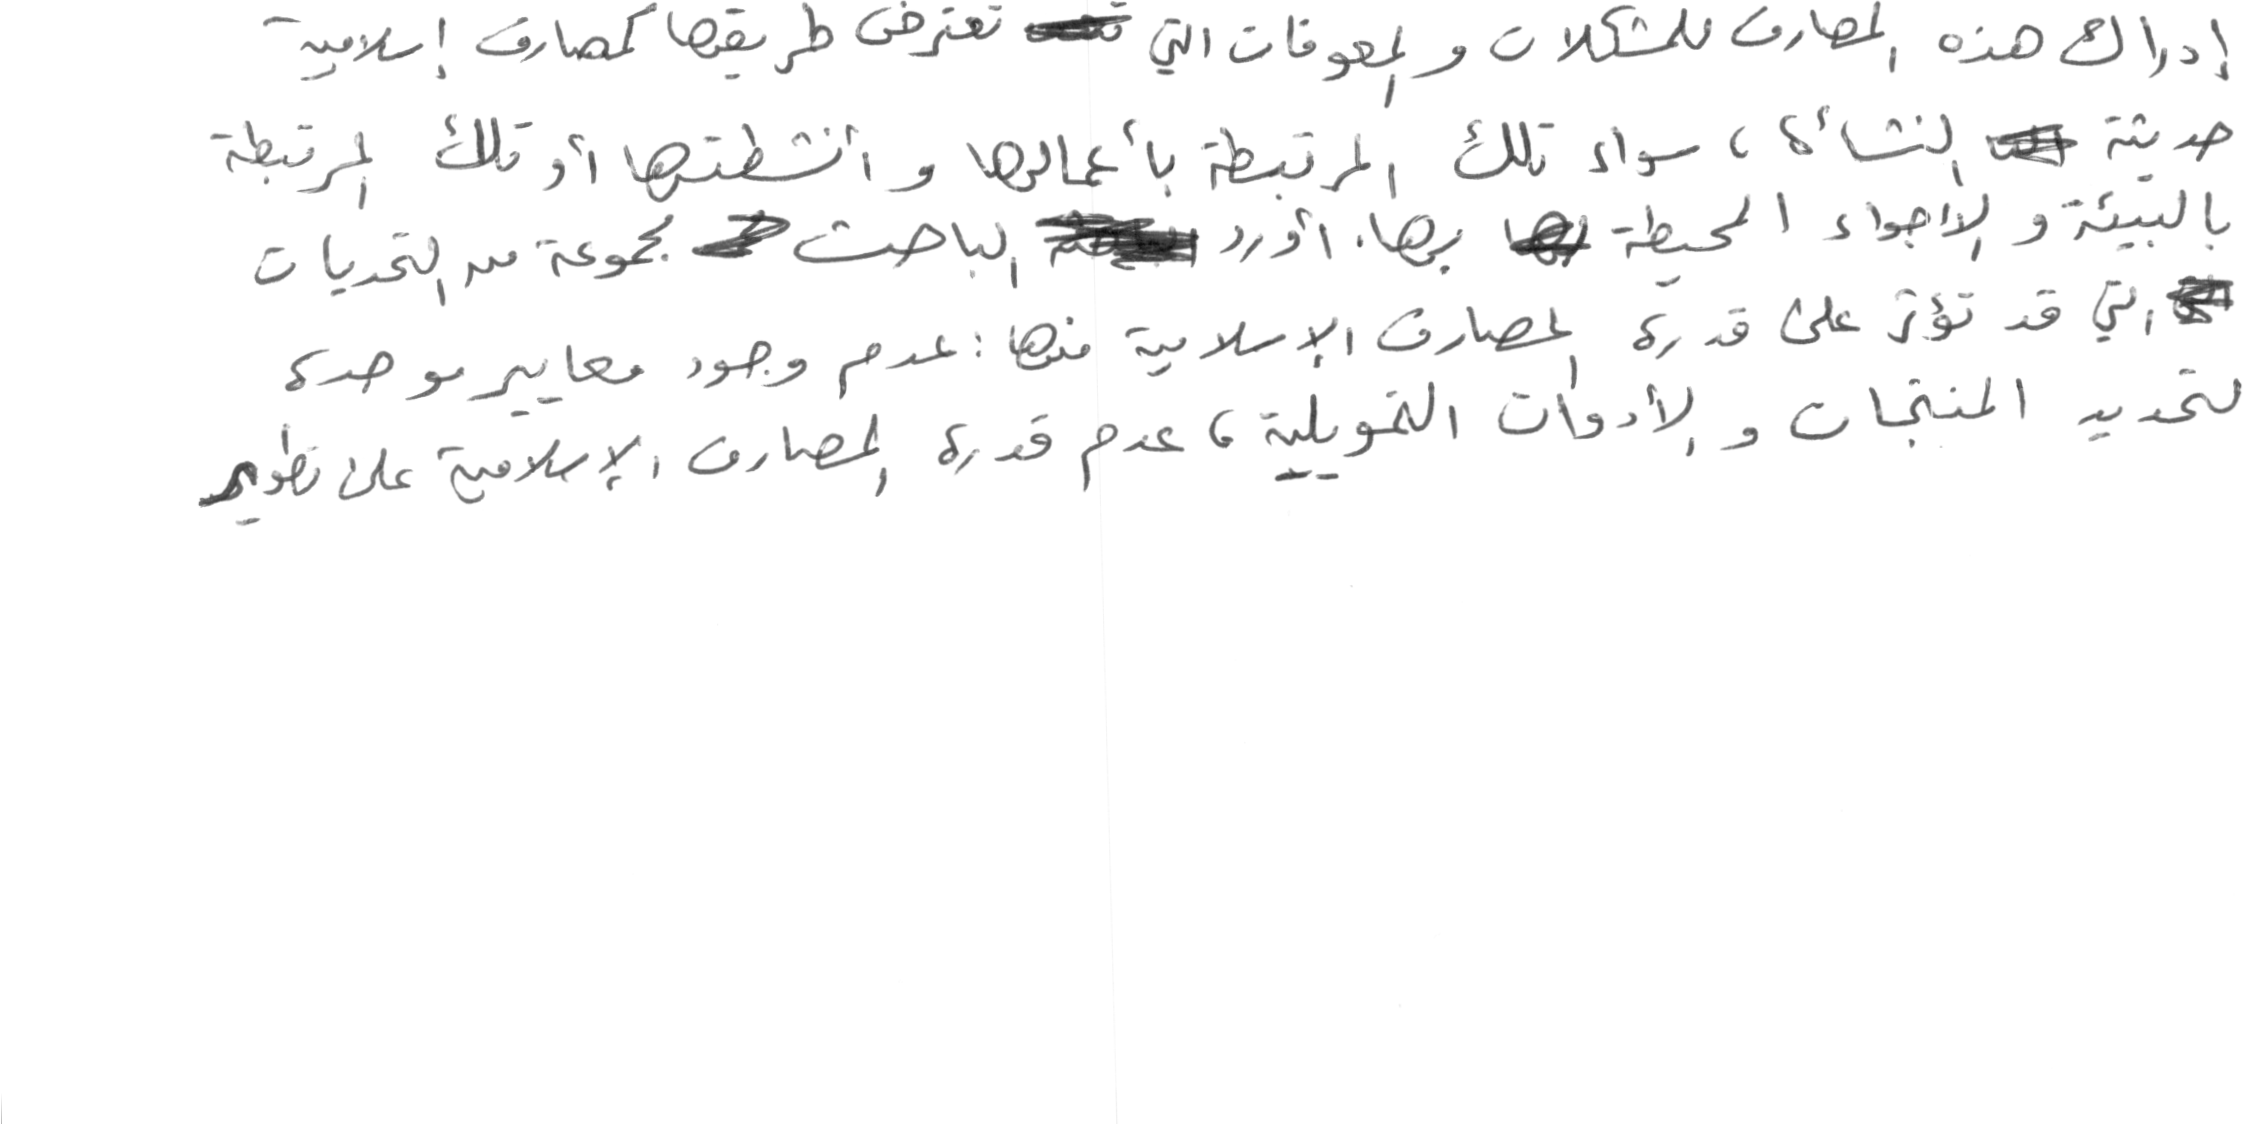 إدراك هذه المصارف للمشكلات والمعوقات التي تعترض طريقها كمصارف إسلامية
حديثة النشأة، سواء تلك المرتبطة بأعمالها وأنشطتها أو تلك المرتبطة
بالبيئة والأجواء المحيطة بها. أورد الباحث مجموعة من التحديات
التي قد تؤثر على قدرة المصارف الإسلامية منها: عدم وجود معايير موحدة
لتحديد المنتجات والأدوات التمويلية، عدم قدرة المصارف الإسلامية على تطوير